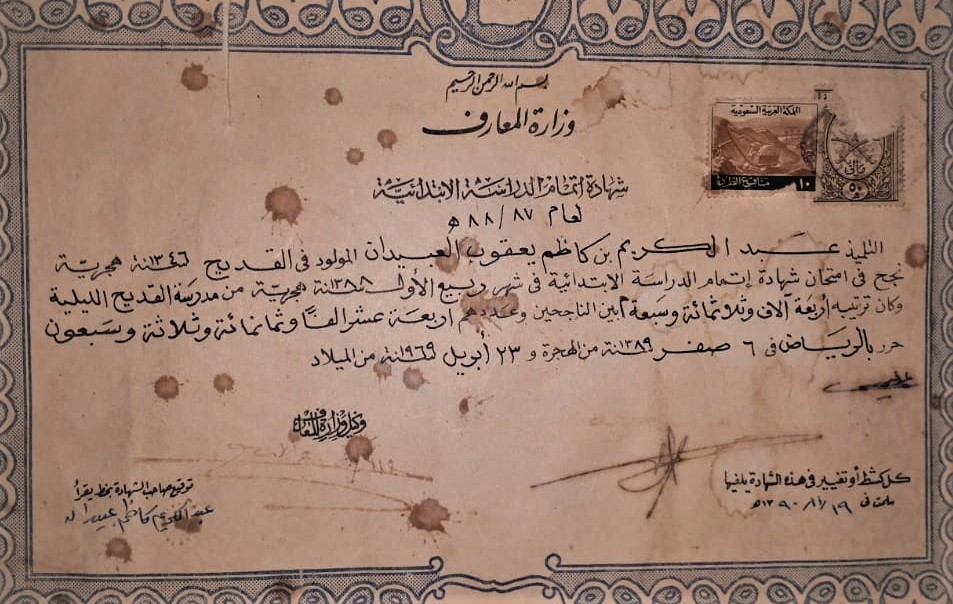 بسم الله الرحمن الرحيم
وزارة المعارف
المملكة العربية السعودية
١٠
٥٠
شهادة إتمام الدراسة الابتدائية
لعام ٨٧/ ٨٨ هـ
التلميذ عبد الكريم بن كاظم يعقوب العبيدان المولود في القديح سنة ١٣٤٦ هجرية
نجح في امتحان شهادة إتمام الدراسة الابتدائية في شهر ربيع الأول سنة ١٣٨٨ هجرية من مدرسة القديح الليلية
وكان ترتيبه أربعة آلاف وثلاثمائة وسبعة بين الناجحين وعددهم أربعة عشر الفا وثمانمائة وثلاثة وسبعون
حرر بالرياض في ٦ صفر سنة ١٣٨٩ من الهجرة و ٢٣ أبريل سنة ١٩٦٩ من الميلاد
وكيل وزارة المعارف
توقيع صاحب الشهادة بخط يقرأ
عبد الكريم كاظم
كل كشط أو تغيير في هذه الشهادة يلغيها